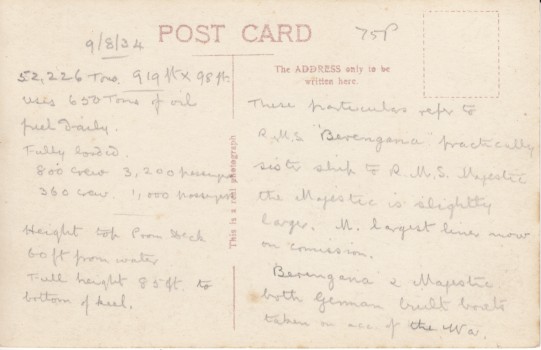 POST CARD
75P
9/8/34
The ADDRESS only to be
written here.
52,226 Tons. 919 ft x 98 ft.
uses 650 Tons of oil
fuel daily.
Fully loaded.
800 crew 3,200 passengers
360 crew 1,000 passengers
Height top Prom Deck
60 ft from water
Full height 85 ft. to
bottom of keel.
This is a real photograph
These particulars refer to
R.M.S "Berengaria" practically
sister ship to R.M.S. Majestic
the Majestic is slightly
larger. M. largest liner now
on comission.
Berengaria & Majestic
both German built boats
taken on acc. of the War.